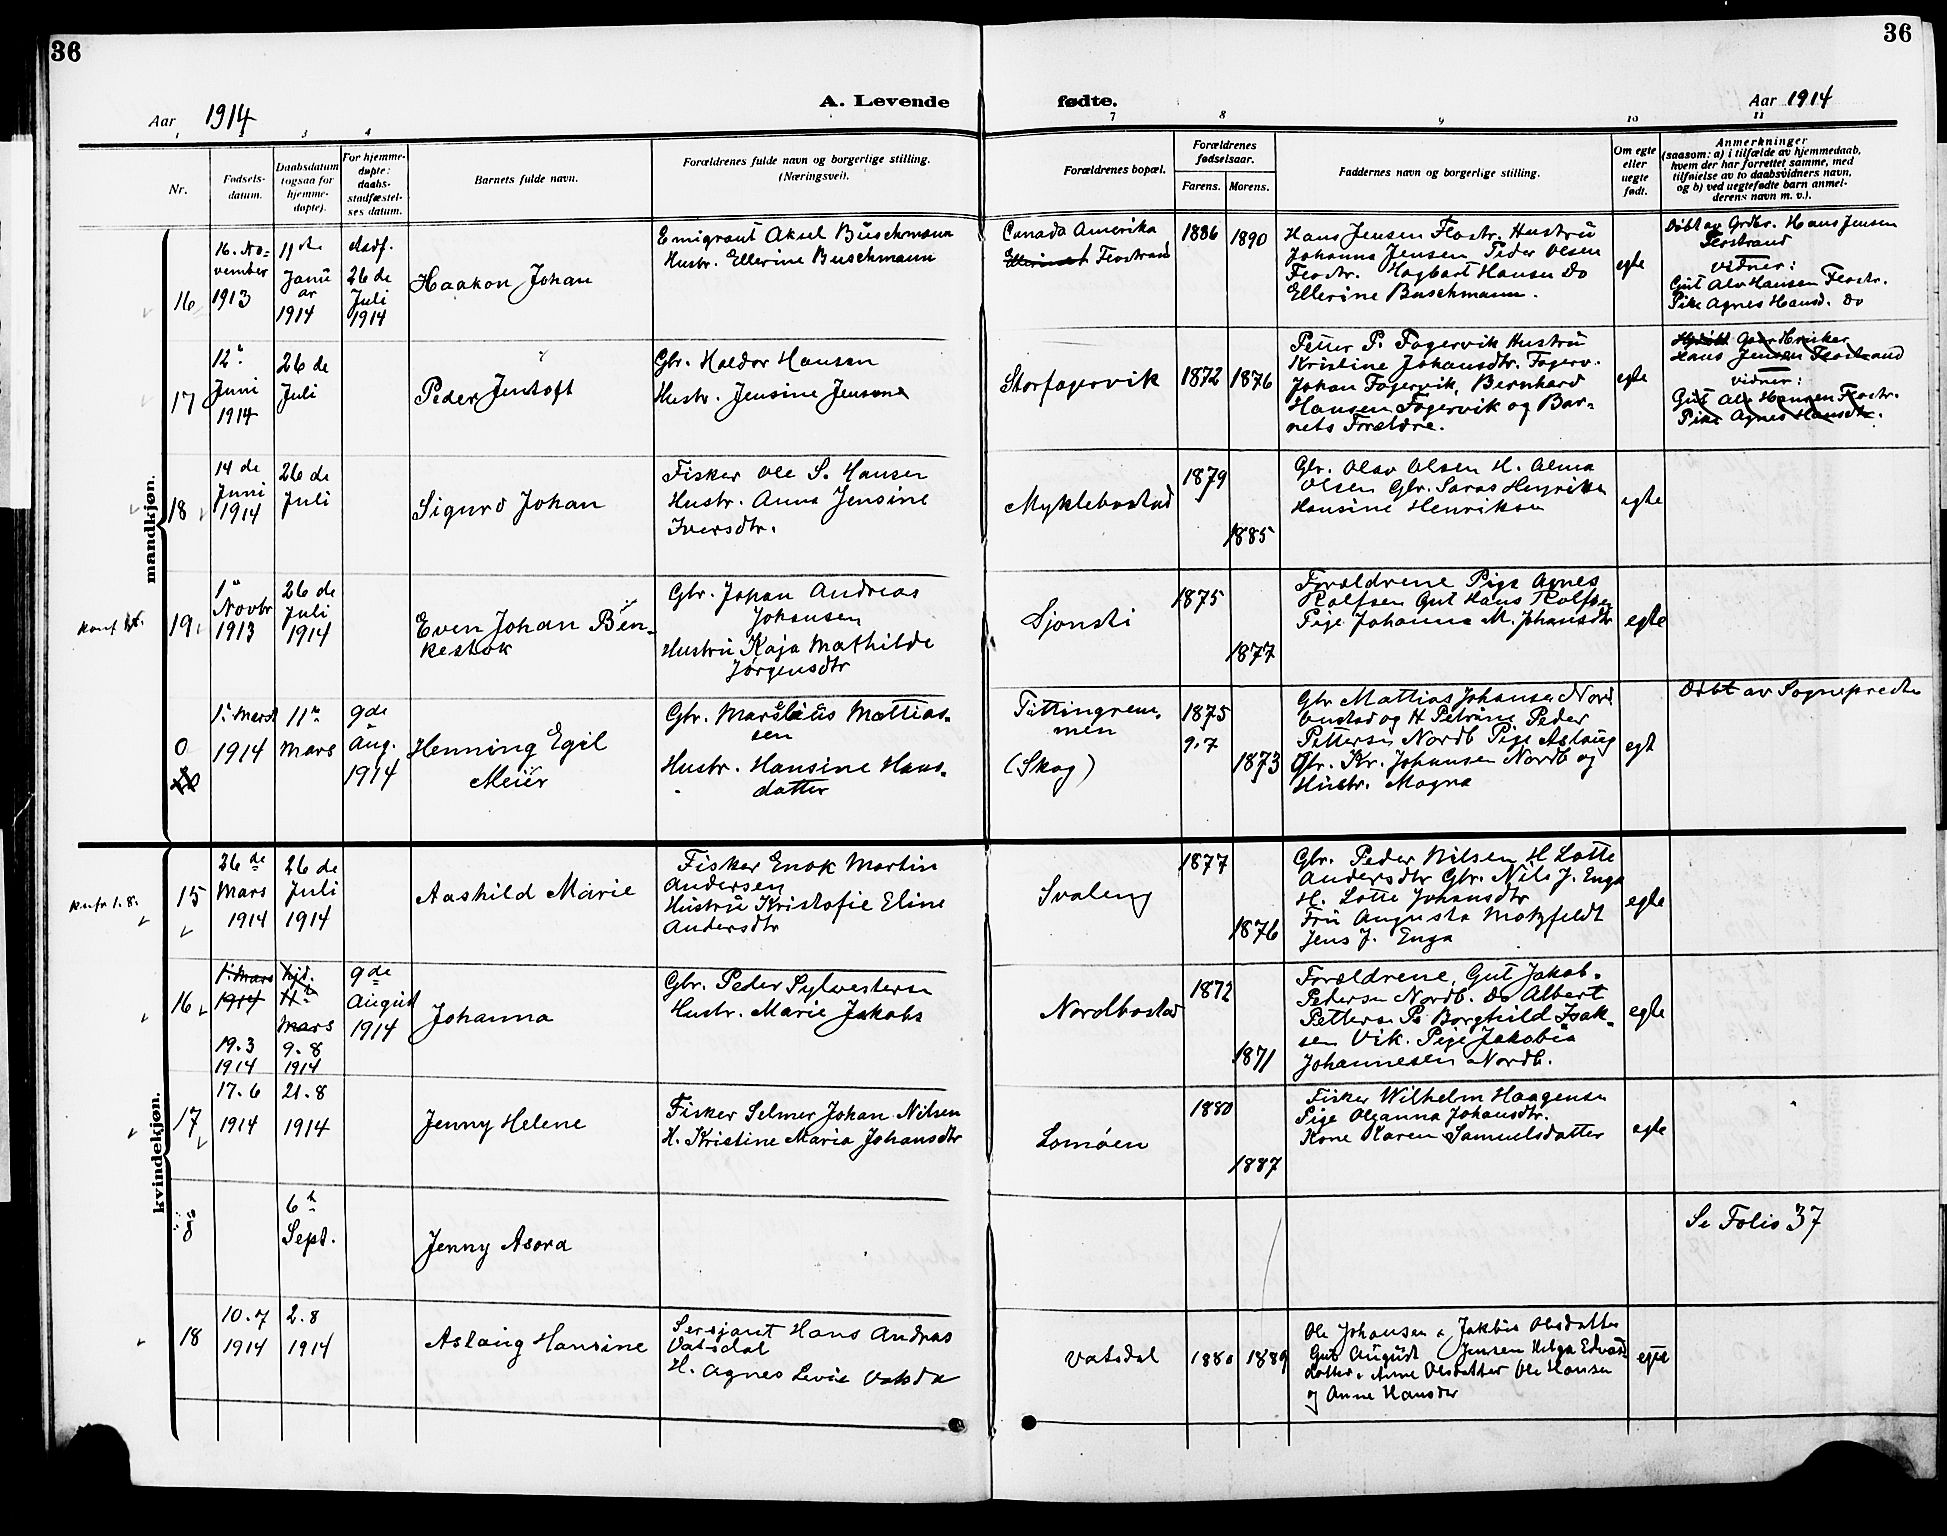 36
36
A. Levende
fødte.
Aar 1914
Aar 1914
1
3
4
7
8
9
10
11
Nr.
Fødsels-
datum.
Daabsdatum
(ogsaa for
hjemme-
døpte).
For hjemme-
døpte:
daabs-
stadfæstel-
ses datum.
Barnets fulde navn.
Forældrenes fulde navn og borgerlige stilling.
(Næringsvei).
Forældrenes bopæl.
Forældrenes
fødselsaar.
Farens.
Morens.
Faddernes navn og borgerlige stilling.
Om egte
eller
uegte
født.
Anmerkninger
(saasom: a) i tilfælde av hjemmedaab,
hvem der har forrettet samme, med
tilføielse av to daabsvidners navn,
og b) ved uegtefødte barn anmel-
derens navn m. v.).
mandkjøn.
16
16. No-
vember
1913
11te
Janu
ar
1914
stadf.
26 de
Juli
1914
Haakon Johan
Emigrant Aksel Buschmann
Hustr. Ellerine Buschmann
Canada Amerika
Flostrand
1886
1890
Hans Jensen Flostr. Hustru
Johanna Jensen Peder Olsen
Flostr. Hagbart Hansen Do
Ellerine Buschmann.
egte
Døbt av Grdbr. Hans Jensen
Flostrand
vidner:
Gut Alv Hansen Flostr.
Pike Agnes Hansd. Do
17
12
Juni
1914
26 de
Juli
Peder Jentoft
Gbr. Haldor Hansen
Hustr. Jensine Jensens
Storfagervik
1872
1876
Petter P. Fagervik Hustru
Kristine Johansdtr. Fagerv.
Johan Fagervik, Bernhard
Hansen Fagervik og Bar-
nets Forældre.
egte
Hans Jensen Flostrand
vidner:
Gut Alv Hansen Flostr.
Pike Agnes Hansdtr.
18
14 de
Juni
1914
26 de
Juli
Sigurd Johan
Fisker Ole S. Hansen
Hustr. Anna Jensine
Iversdtr.
Myklebostad
1879
1885
Gbr. Olav Olsen H. Alma
Olsen Gbr. Saras Henriksen
Hansine Henriksen
egte
Konf.
19
1
Novbr
1913
26 de
Juli
1914
Even Johan Ben-
kestok
Gbr. Johan Andreas
Johansen
Hustru Kaja Mathilde
Jørgensdtr
Sjonsti
1875
1877
Forældrene Pige Agnes
Rolfsen Gut Hans Rolfsen
Pige Johanna M. Johansdtr
egte
0
20
1. Mars
1914
11
Mars
9 de
Aug.
1914
Henning Egil
Meier
Gbr. Marselius Mattias-
sen
Hustr. Hansine Hans-
datter
(Skog)
1875
9.7
1873
Gbr Mattias Johansen Nord
bostad og H Petrine Peder
Pettersen Nordb Pige Aslaug
Gbr. Kr. Johansen Nordb og
Hustr. Magna
egt
Døbt av Sognepresten
kvindekjøn.
Konfr 1.8.
15
26 de
Mars
1914
26 de
Juli
1914
Aashild Marie
Fisker Enok Martin
Andersen
Hustru Kristofie Eline
Andersdtr
Svaleng
1877
1876
Gbr. Peder Nilsen H Lotte
Andersdtr Gbr. Nils J. Enga
H. Lotte Johansdtr
Fru Augusta Motzfeldt
Jens J. Enga
egte
16
1. Mars
1914
19.3
1914
hjd.
11
Mars
9.8
1914
9 de
August
1914
Johanna
Gbr. Peder Sylvestersen
Hustr. Marie Jakobs
Nordbostad
1872
1871
Forældrene, Gut Jakob
Pedersen Nordb. Do Albert
Pettersen Pe Borghild Isak-
sen Vik. Pige Jakobia
Johannesen Nordb.
egte
17
17.6
1914
21.8
1914
Jenny Helene
Fisker Selmer Johan Nilsen
H. Kristine Maria Johansdtr
Lomøen
1880
1887
Fisker Wilhelm Haagensen
Pige Oleanna Johansdtr.
Kone Karen Samuelsdatter
egte
8
6
Sept.
Jenny Asora
Se Folio 37
18
10.7
1914
2.8
1914
Aslaug Hansine
Sersjant Hans Andreas
Vatsdal
H. Agnes Levie Vatsda
Vatsdal
1880
1889
Ole Johansen & Jakbis Olsdatter
Gut August Jensen Helga Edvard
datter, Anne Olsdatter Ole Hansen
og Anne Hansdtr
egte